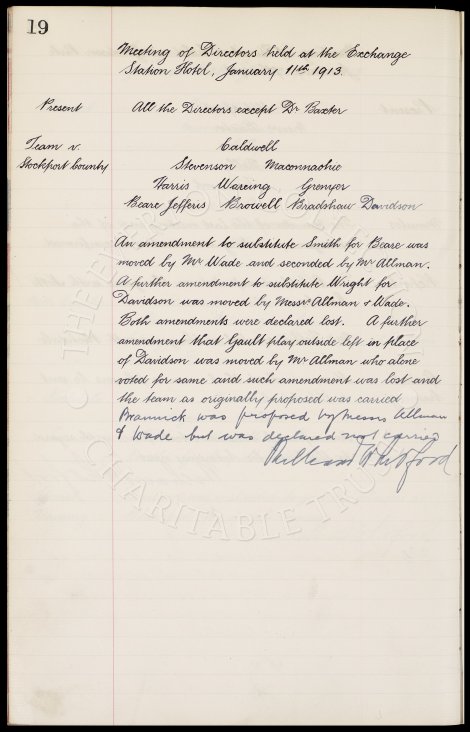 19
Meeting of Directors held at the Exchange
Station Hotel, January 11th 1913.
Present All the Directors except Dr Baxter
Team v. Caldwell
Stockport County Stevenson Maconnachie
Harris Wareing Grenyer
Beare Jefferis Browell Bradshaw Davidson
An amendment to substitute Smith for Beare was
moved by Mr Wade and seconded by Mr Allman.
A further amendment to substitute Wright for
Davidson was moved by Messrs Allman & Wade.
Both amendments were declared lost. A further
amendment that Gault play outside left in place
of Davidson was moved by Mr Allman who alone
voted for same and such amendment was lost and
the team as originally proposed was carried
Brannick was proposed by Messrs Allman
& Wade but was declared not carried
CHARITABLE TRUST